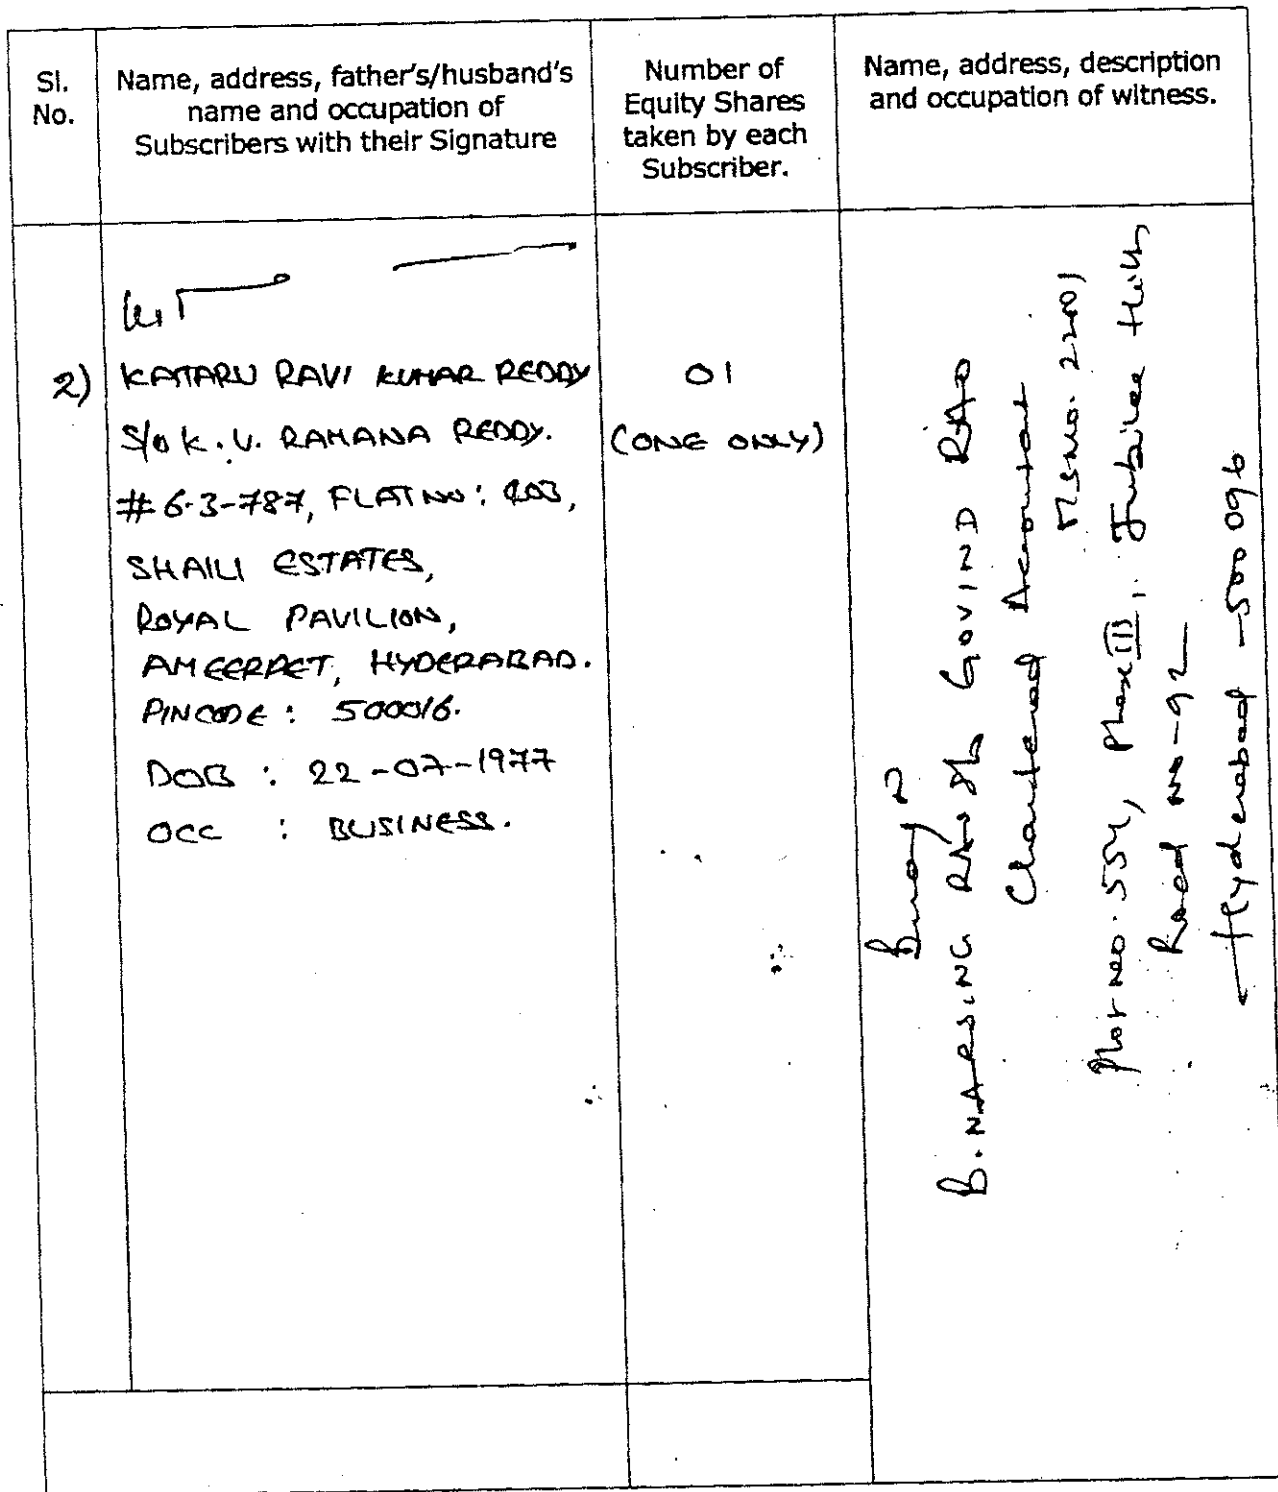 Sl.
No.
Name, address, father's/husband's
name and occupation of
Subscribers with their Signature
Number of
Equity Shares
taken by each
Subscriber.
Name, address, description
and occupation of witness.
2)
KATARU RAVI KUMAR REDDY
S/o K. V. RAMANA REDDY.
# 6-3-787, FLAT NO:
SHAILI ESTATES,
ROYAL PAVILION,
AMEERPET, HYDERABAD.
PINCODE : 500016.
DOB : 22-07-1977
OCC : BUSINESS.
01
(ONE ONLY)
B. NARSING GOVIND RAO
Chartered Accountant
MSNO. 22001
Plot no. 554, Phase III, Jubilee Hills
Road no-92
Hyderabad - 500 096